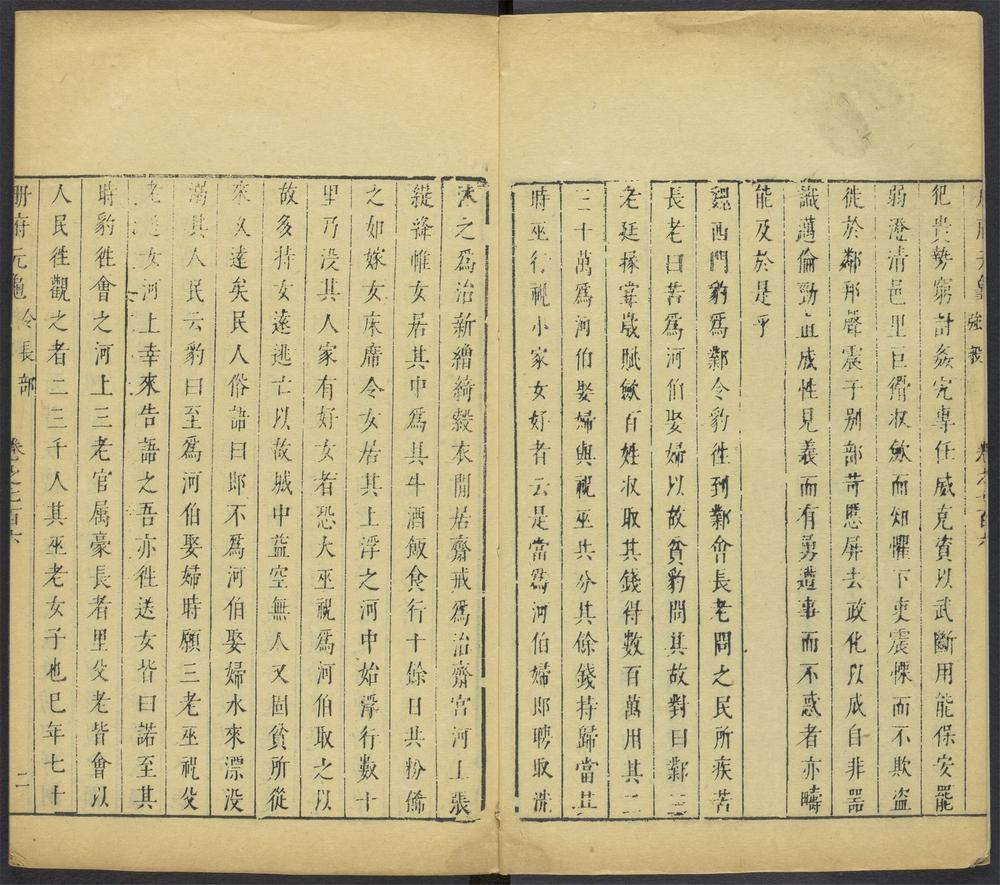 強毅
犯貴勢窮計姦宄專任威克資以武斷用能保安罷
弱澄清邑里巨猾収斂而知懼下吏震慄而不欺盜
徙於鄰邦聲震于別部苛慝屏去政化以成自非器
識邁倫勁直成性見義而有勇遭事而不惑者亦疇
能及於是乎
魏西門豹爲鄴令豹徃到鄴會長老問之民所疾苦
長老曰苦爲河伯娶婦以故貧豹問其故對曰鄴三
老廷掾常歳賦斂百姓収取其錢得数百萬用其二
三十萬爲河伯娶婦與祝巫共分其餘錢持歸當其
時巫行視小家女好者云是當爲河伯婦即聘取洗
沐之爲治新繒綺縠衣閒居齋戒爲治齋宮河上張
緹絳帷女居其中爲具牛酒飯食行十餘日共粉飾
之如嫁女床席令女居其上浮之河中始浮行数十
里乃没其人家有好女者恐大巫祝爲河伯取之以
故多持女逺逃亡以故城中益空無人又固貧所從
來久逺矣民人俗語曰即不爲河伯娶婦水來漂没
溺其人民云豹曰至爲河伯娶婦時願三老巫祝父
老送女河上幸來告語之吾亦徃送女皆曰諾至其
時豹徃會之河上三老官属豪長者里父老皆會以
人民徃觀之者二三千人其巫老女子也巳年七十
冊府元龜 令長部 二